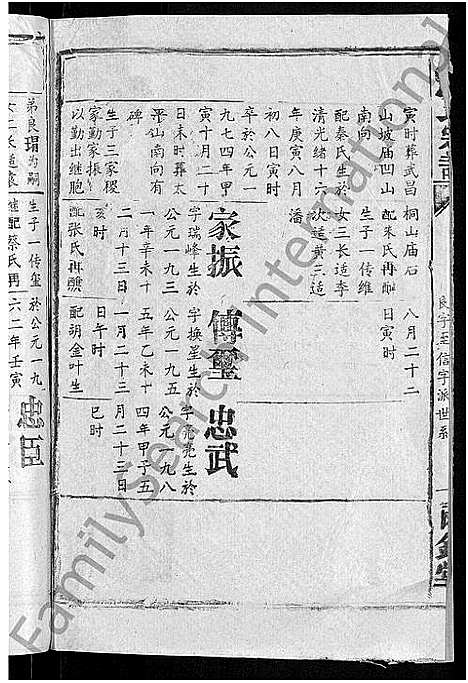 良字至信字派世系
寅时葬武昌
山坡庙凹山
南向
配秦氏生於
清光绪十六
年庚寅八月
初八日寅时
卒於公元一
九七四年甲
寅十月二十
日未时葬太
山南向有
碑
生子三家稷
家勤家振
以勤出继胞
弟良瑁为嗣
桐山庙石
配朱氏再醮
生子一传维
女三长适李
次适黄三适
潘
家振
字瑞峰生於
公元一九三
一年辛未十
二月十三日
亥时
配张氏再醮
生子一传玺
继配蔡氏再
八月二十二
日寅时
傳璽
字换星生於
公元一九五
五年乙未十
一月二十三
日午时
配胡金叶生
於公元一九
六二年壬寅
忠武
字亮亮生於
公元一九八
四年甲子五
月二十三日
巳时
忠臣
FamilySearch International